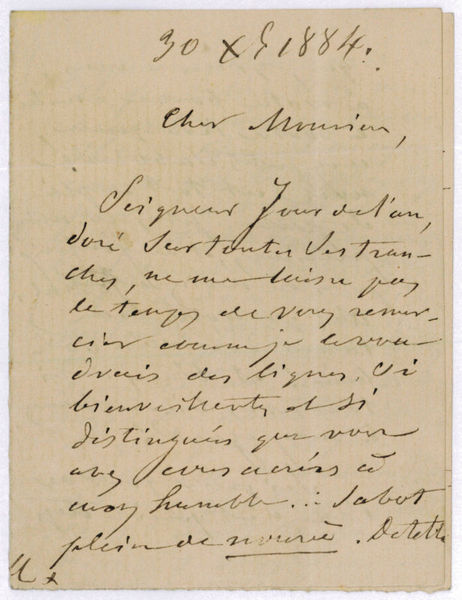 30 Xe 1884.
Cher Monsieur,
Seigneur Jour de l'an,
doré sur toutes ses tran-
ches, ne me laisse pas
le temps de vous remer-
cier comme je le vou-
drais des lignes, si
bienveillantes et si
distinguées que vous
avez consacrées à
mon humble... Sabot
plein de